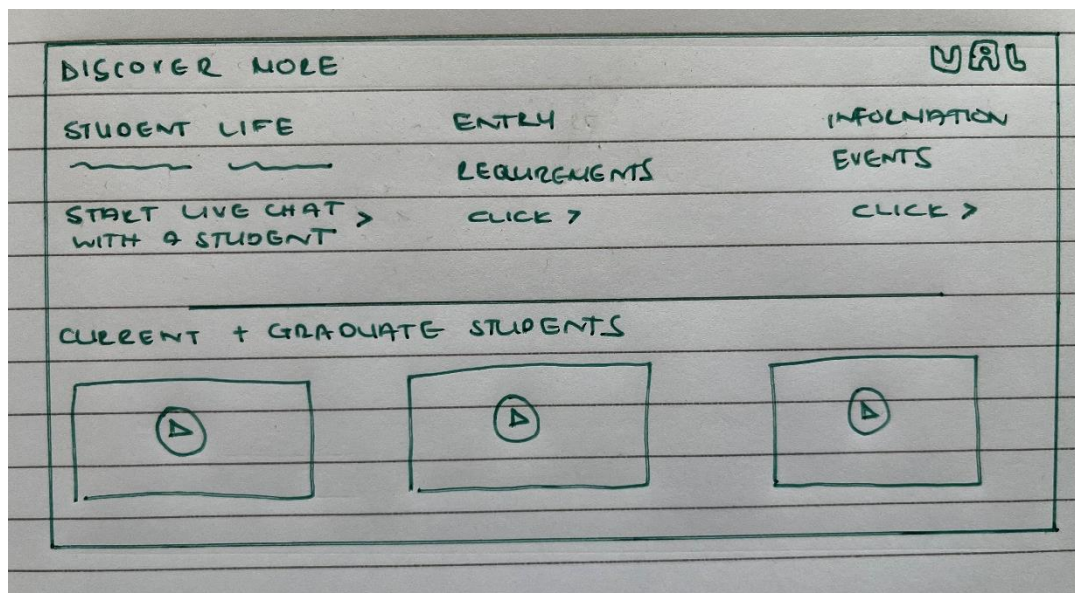 DISCOVER MORE
UAL
STUDENT LIFE
START LIVE CHAT >
WITH A STUDENT
ENTRY
REQUIREMENTS
CLICK >
INFORMATION
EVENTS
CLICK >
CURRENT + GRADUATE STUDENTS